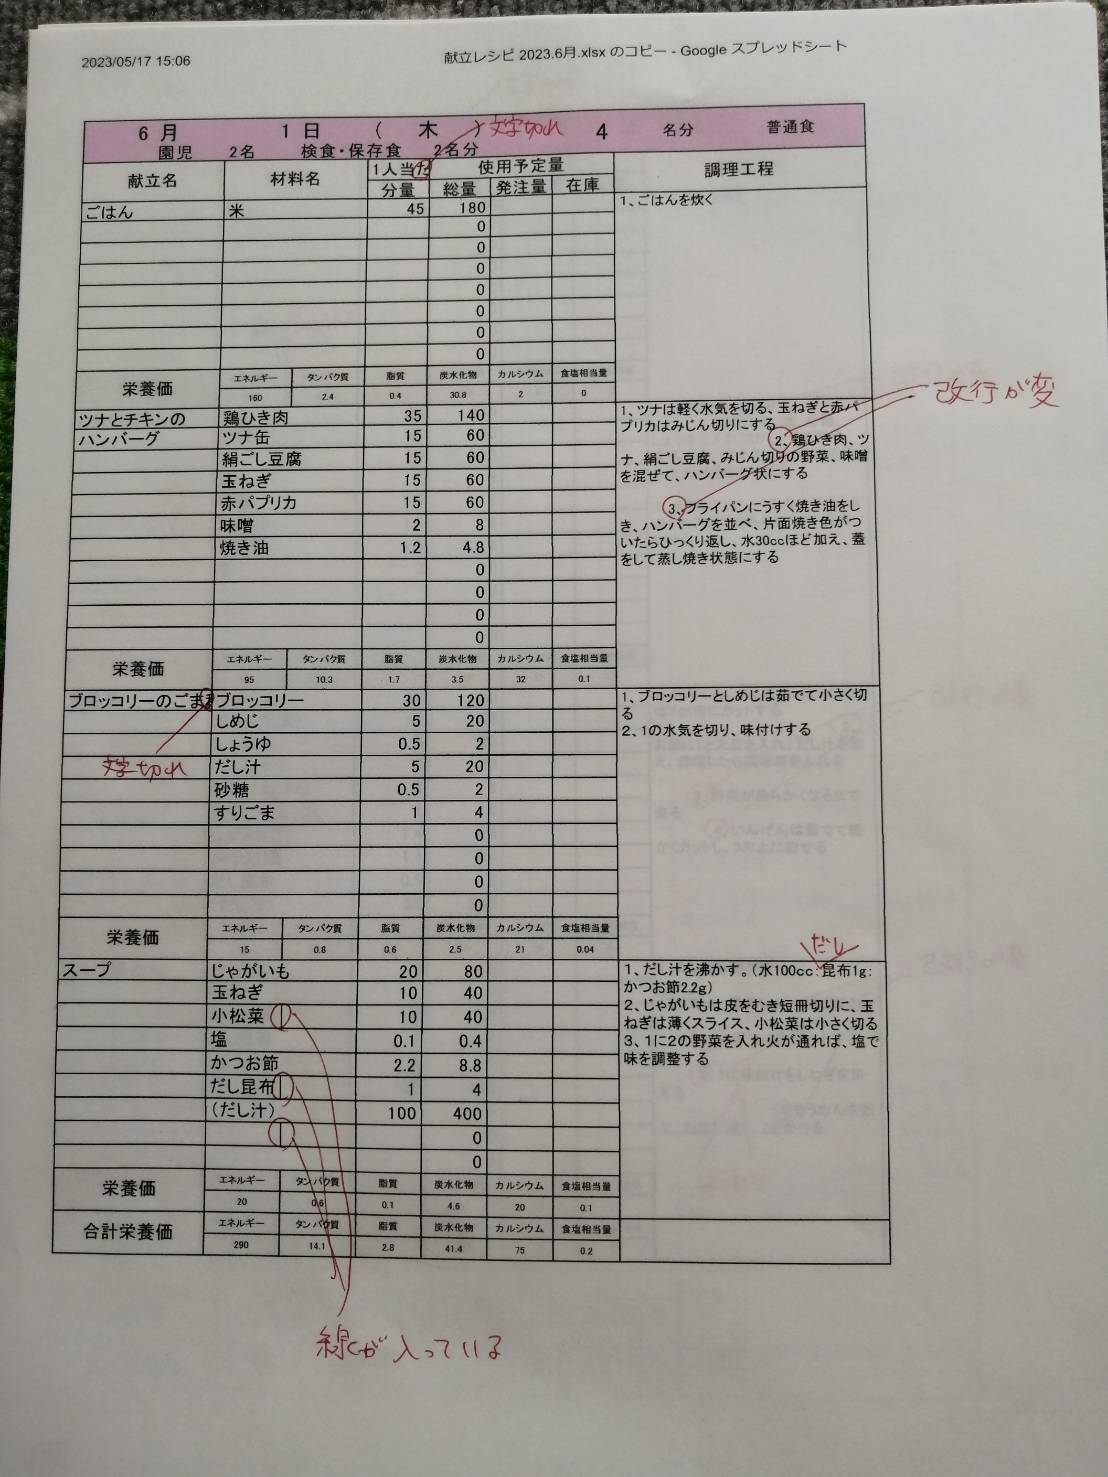 2023/05/17 15:06 献立レシピ 2023.6月.xlsx のコピー - Google スプレッドシート
6 月 1 日 ( 木 ) 文字切れ 4 名分 普通食
園児 2名 検食・保存食 2名分
献立名 材料名 1人当た 使用予定量 調理工程
分量 総量 発注量 在庫
ごはん 米 45 180 1、ごはんを炊く
0
0
0
0
0
0
0
栄養価 エネルギー タンパク質 脂質 炭水化物 カルシウム 食塩相当量
160 2.4 0.4 30.8 2 0
改行が変
ツナとチキンの 鶏ひき肉 35 140 1、ツナは軽く水気を切る、玉ねぎと赤パ
ハンバーグ ツナ缶 15 60 プリカはみじん切りにする
絹ごし豆腐 15 60 2、鶏ひき肉、ツ
玉ねぎ 15 60 ナ、絹ごし豆腐、みじん切りの野菜、味噌
赤パプリカ 15 60 を混ぜて、ハンバーグ状にする
味噌 2 8 3、フライパンにうすく焼き油をし
焼き油 1.2 4.8 き、ハンバーグを並べ、片面焼き色がつ
0 いたらひっくり返し、水30ccほど加え、蓋
0 をして蒸し焼き状態にする
0
0
栄養価 エネルギー タンパク質 脂質 炭水化物 カルシウム 食塩相当量
95 10.3 1.7 3.5 32 0.1
ブロッコリーのごま ブロッコリー 30 120 1、ブロッコリーとしめじは茹でて小さく切
しめじ 5 20 る
しょうゆ 0.5 2 2、1の水気を切り、味付けする
文字切れ だし汁 5 20
砂糖 0.5 2
すりごま 1 4
0
0
0
0
栄養価 エネルギー タンパク質 脂質 炭水化物 カルシウム 食塩相当量
15 0.8 0.6 2.5 21 0.04
だし
スープ じゃがいも 20 80 1、だし汁を沸かす。(水100cc:昆布1g:
玉ねぎ 10 40 かつお節2.2g)
小松菜 10 40 2、じゃがいもは皮をむき短冊切りに、玉
塩 0.1 0.4 ねぎは薄くスライス、小松菜は小さく切る
かつお節 2.2 8.8 3、1に2の野菜を入れ火が通れば、塩で
だし昆布 1 4 味を調整する
(だし汁) 100 400
0
0
栄養価 エネルギー タンパク質 脂質 炭水化物 カルシウム 食塩相当量
20 0.6 0.1 4.6 20 0.1
合計栄養価 エネルギー タンパク質 脂質 炭水化物 カルシウム 食塩相当量
290 14.1 2.8 41.4 75 0.2
線が入っている